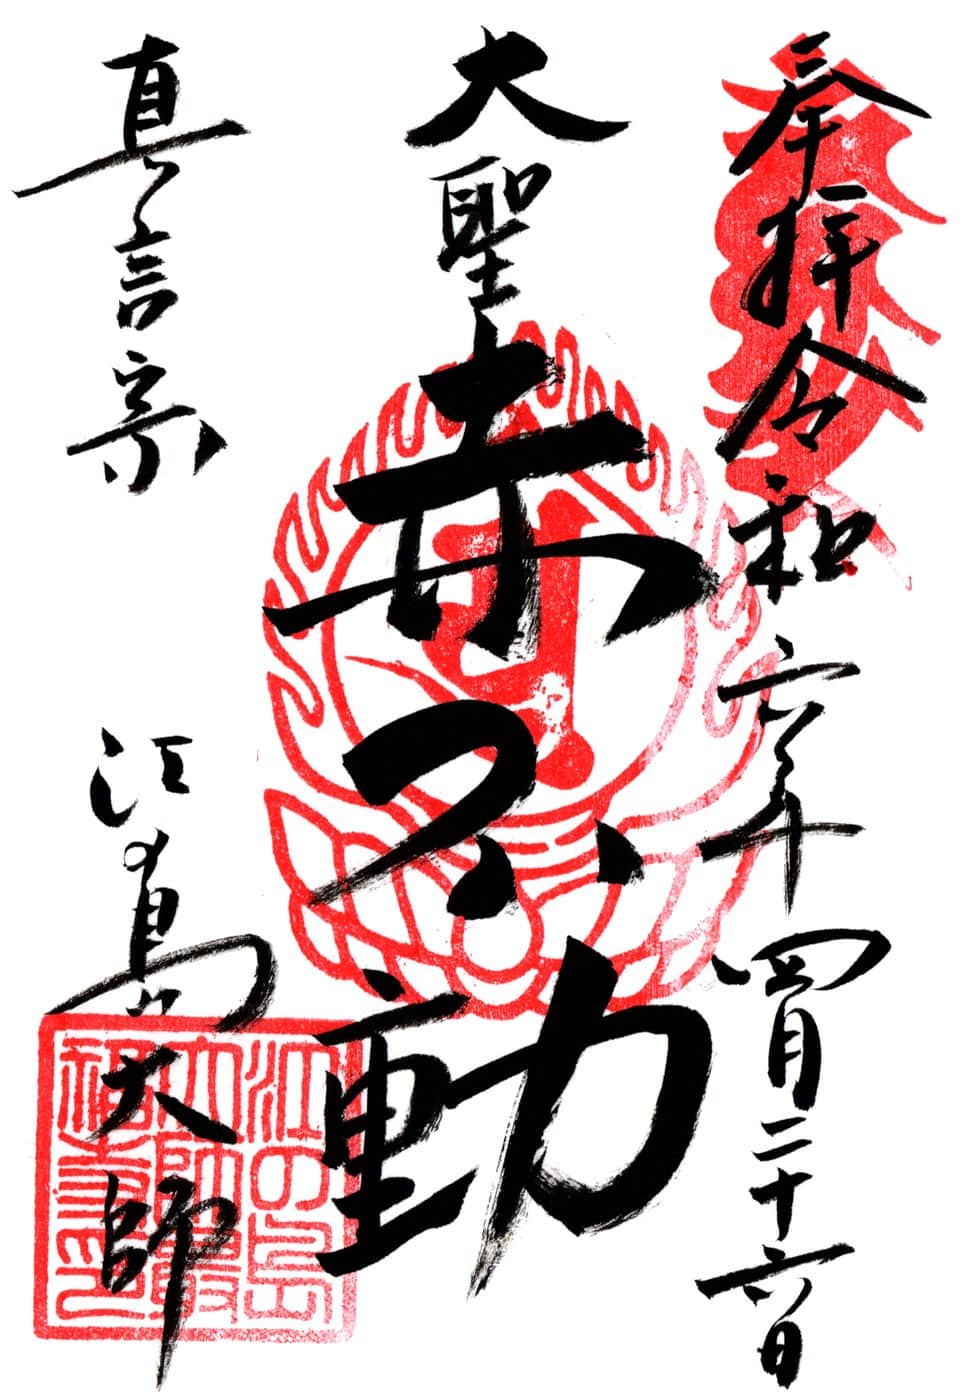 奉拝令和六年四月二十六日
大聖赤不動
真言宗
江の島大師
江の島
大師最
福寺印